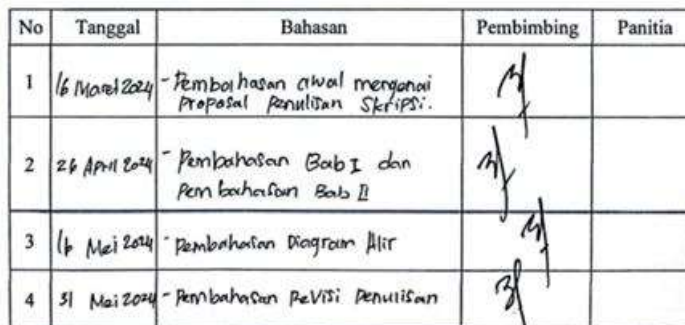 No Tanggal Bahasan Pembimbing Panitia
1 16 Maret 2024 - Pembahasan awal mengenai
proposal penulisan Skripsi.
2 26 April 2024 - Pembahasan Bab I dan
Pembahasan Bab II
3 16 Mei 2024 - Pembahasan Diagram Alir
4 31 Mei 2024 - Pembahasan Revisi Penulisan